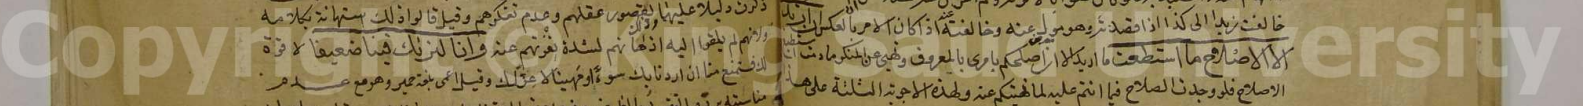 خالفت زيدا الى كذا اذا قصدته وهو مول عنه وخالفته عنه اذا كان الامر بالعكس ان اريد
الا الاصلاح ما استطعت ما اريد الا ان اصلحكم بامري بالمعروف ونهيي عن المنكر ما دمت
الاصلاح فلو وجدت الصلاح فيما انتم عليه لما نهيتكم عنه ولهذه الاجوبة الثلثة على هذا
ذكرت دليلا عليها لقصور عقلهم وعدم تفكرهم وقيل قالوا ذلك استهانة بكلامه
ولانهم لم يلقوا اليه اذهانهم لشدة نفرتهم عنه وانا لنراك فينا ضعيفا لا قوة
لك فتمتنع منا ان اردنا بك سوءا او مهينا لا عز لك وقيل اعمى بلغة حمير وهو مع عدم
Copyright © University